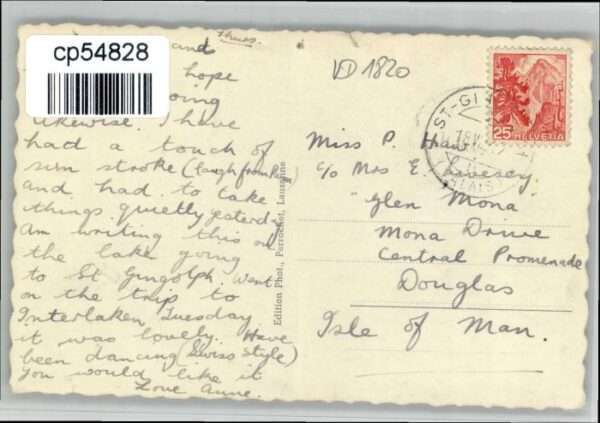 cp54828
Thurs.
and
hope
going
likewise. I have
had a touch of
sun stroke (laugh from
and had to take
things quietly yesterday
am writing this on
the lake going
to St Gingolph. Went
on the trip to
Interlaken Tuesday
it was lovely. Have
been dancing (Swiss style)
You would like it
Love Anne.
Edition Phot., Perrochet, Lausanne
VD 1820
ST-GI
18
(VALAIS)
25
HELVETIA
Miss P.
c/o Mrs E. Livesey
"Glen Mona
Mona Drive
Central Promenade
Douglas
Isle of Man.